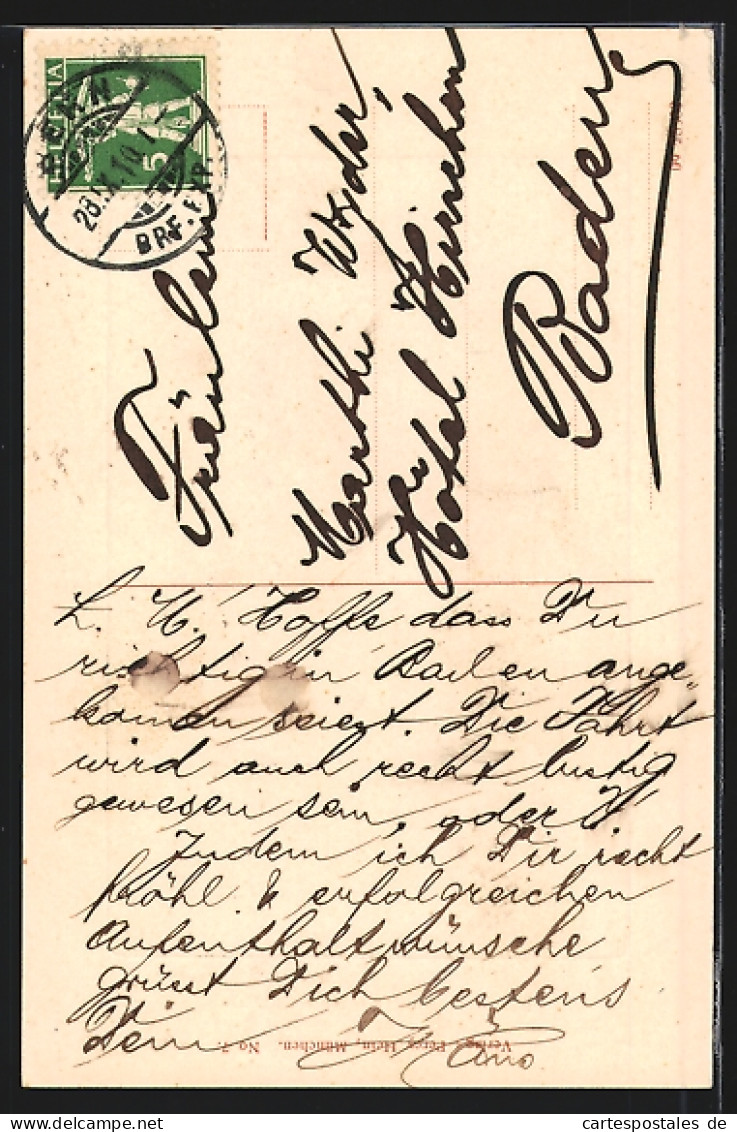 HELVETIA
5
BERN
BRF. EXP.
Fräulein
Marthi Wyder,
Hôtel Hirschen
Baden
L. M.! Hoffe dass Du
richtig in Baden ange-
kommen seiest. Die Fahrt
wird auch recht lustig
gewesen sein, oder?
Indem ich Dir recht
fröhl. & erfolgreichen
Aufenthalt wünsche
grüsst Dich bestens
Dein Hans
Verlag Percy Hein, München. No 7.
cartespostales de